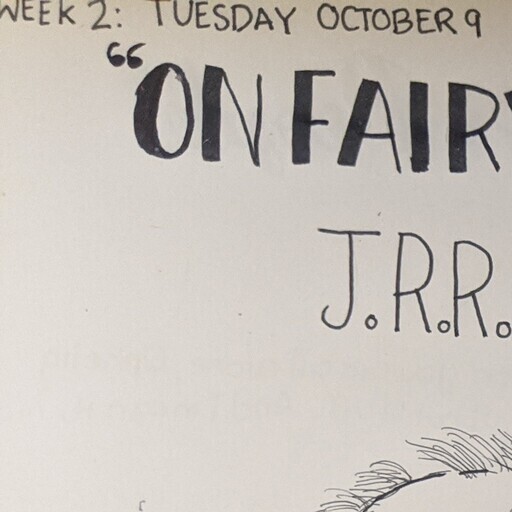 WEEK 2: TUESDAY OCTOBER 9
"ON FAIRY
J.R.R.